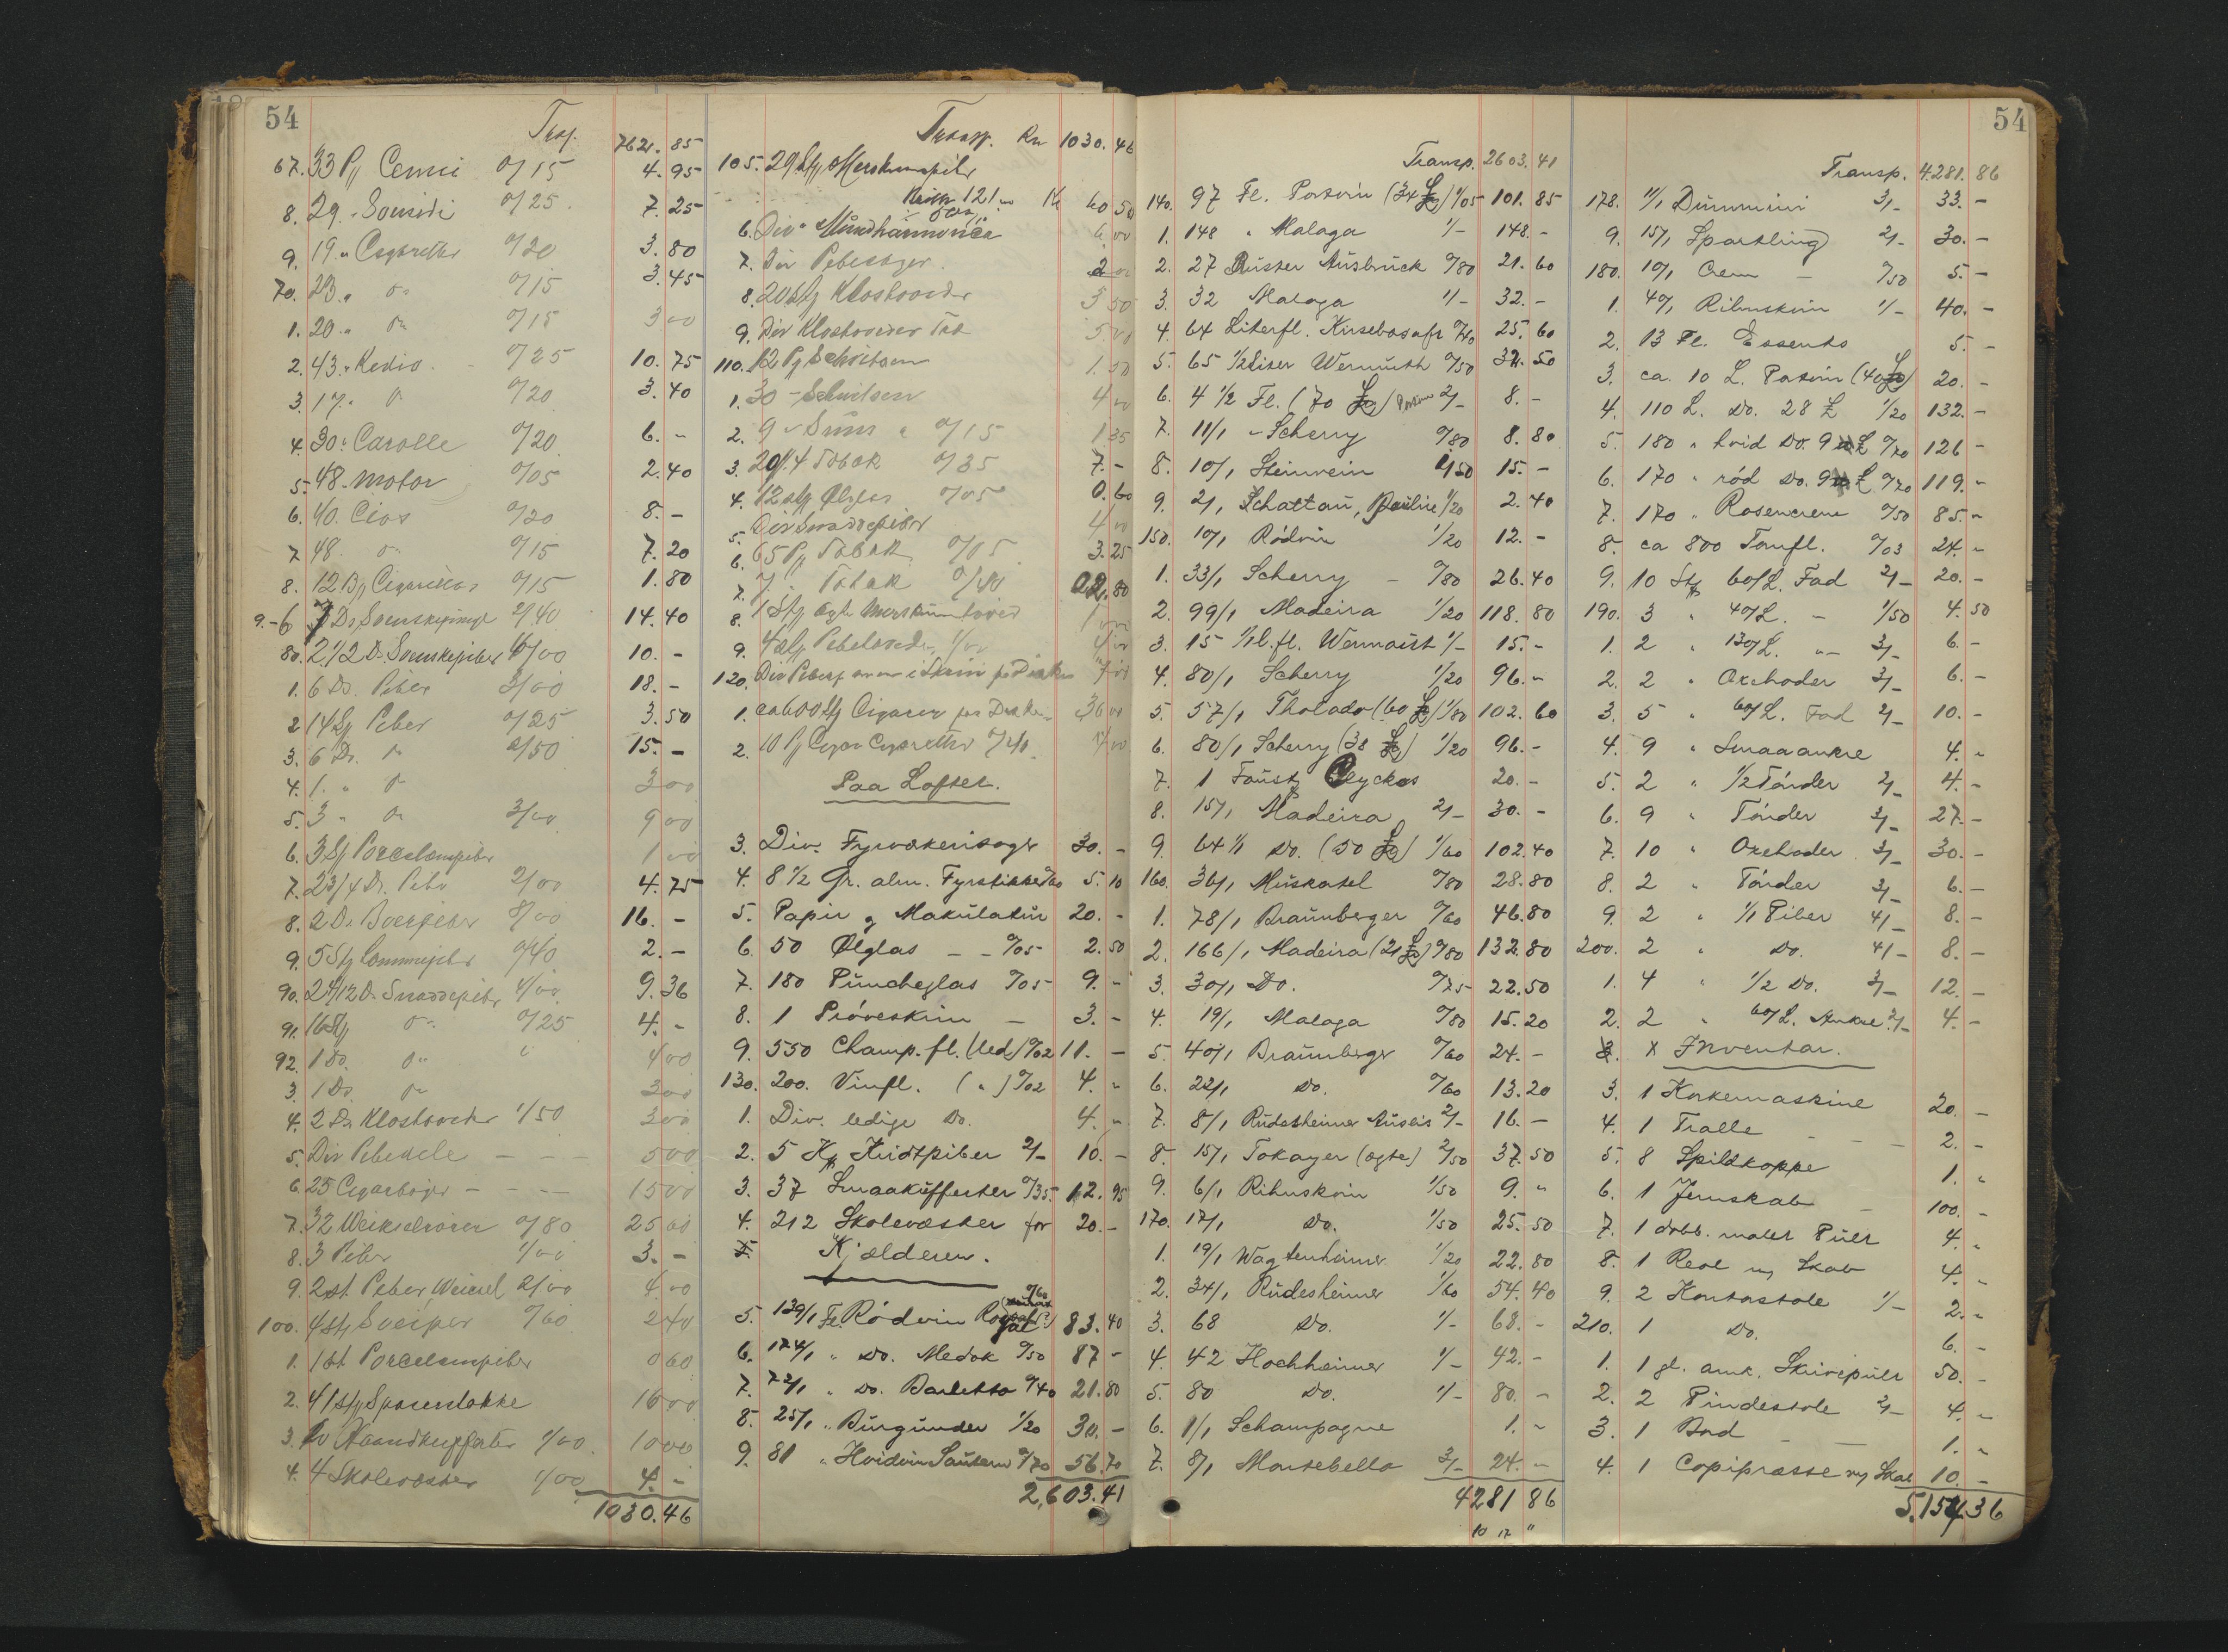 54
Trsp. 762.85
67. 33 Pk 0/15 4.95
8. 29 " 0/25 7.25
9. 19 " Cigaretter 0/20 3.80
70. 23 " do 0/15 3.45
1. 20 " do 0/15 3 00
2. 43 " Kedio 0/25 10.75
3. 17 " do 0/20 3.40
4. 30 " Carolle 0/20 6.-
5. 48 - Motor 0/05 2.40
6. 40. Cios 0/20 8.-
7. 48. do 0/15 7.20
8. 12 0/15 1.80
9.- 6 Ds 2/40 14.40
80. 2 1/2 Ds. 4/00 10.-
1. 6 Ds. Piber 3/00 18.-
2. 14 Stk Piber 0/25 3.50
3. 6 Ds. do 2/50 15.-
4. 1. " do 3 00
5. 3 " do 3/00 9 00
6. 3 Stk Porcelænspiber 1 00
7. 2 3/4 Ds. Piber 2/00 4.75
8. 2 Ds 8/00 16.-
9. 5 Stk 0/40 2.-
90. 2 4/12 Ds Snaddepiber 4/00 9.36
91. 16 Stk do 0/25 4.-
92. 1 Ds. do " 4 00
3. 1 Ds. do 3 00
4. 2 Ds 1/50 3 00
5. Div Pibedele - - - 5 00
6. 25 Cigarbøger - - - 15 00
7. 32 Weikselrører 0/80 25 60
8. 3 Piber 1/00 3.-
9. 2 st. Piber, Weicsel 2/00 4 00
100. 4 stk Sveiper 0/60 2 40
1. 1 st Porcelænspiber 0 60
2. 41 stk Spaserstokke 16 00
3. 10 Haandkufferter 1/00 10 00
4. 4 Skolevæsker 1/00 4.-
1030.46
Transp. Kr 1030.46
105. 29 Stk Merskumspiber
Kr 60 50
6. Div. Mundharmonica 6 00
7. Div Pibesager. 2 00
8. 20 Stk 3 50
9. Div 5 00
110. 12 Pk 1.50
1. 30 - 4 00
2. 9 - " 0/15 1 35
3. 20 1/4 Tobak 0/35 7.-
4. 12 stk Ølglas 0/05 0.60
5. Div Snaddepiber 4 00
6. 65 Pk Tobak 0/05 3.25
7. Tobak 0/40 22.80
8. 1 Stk ægte Merskumshoved
9. 4 stk 1/00 4 00
120. Div
1. ca 600 Stk Cigarer 36 00
2. 10 Pk 0/40 4 00
Paa Loftet.
3. Div. Fyrværkerisager 30.-
4. 8 1/2 Gr. alm. Fyrstikker 0/60 5.10
5. Papir og Makulatur 20.-
6. 50 Ølglas - - 0/05 2.50
7. 180 Puncheglas 0/05 9.-
8. 1 Prøveskrin - 3.-
9. 550 Champ. fl. (led) 0/02 11.-
130. 200. Vinfl. ( " ) 0/02 4.-
1. Div. ledige Do. 4.-
2. 5 Kridtpiber 2/- 10.-
3. 37 Smaakufferter 0/35 12.95
4. 212 Skolevæsker for 20.-
Kjælderen.
5. 139/1 Fl. Rödvin 0/60 83.40
6. 174/1 " Do. Medok 0/50 87 -
7. " Do. Barletta 0/40 21.80
8. 25/1 " Burgunder 1/20 30.-
9. 81 " Hvidvin Sautern 0/70 56.70
2,603.41
Transp. 2603.41
140. 97 Fl. Portvin (34 £) 1/05 101.85
1. 148 " Malaga 1/- 148.-
2. 27 Ruster Ausbruck 0/80 21.60
3. 32 Malaga 1/- 32.-
4. 64 Literfl. Kirsebærsaft 0/40 25.60
5. 65 1/2 Liter Wermuth 0/50 32.50
6. 4 1/2 Fl. (70 £) Portvin 2/- 8.-
7. 11/1 - Scherry 0/80 8.80
8. 10/1 Steinvein 1/50 15.-
9. 2/1 Schattau, Pauline 1/20 2.40
150. 10/1 Rödvin 1/20 12.-
1. 33/1 Scherry - 0/80 26.40
2. 99/1 Madeira 1/20 118.80
3. 15 1/1 l. fl. Wermaist 1/- 15.-
4. 80/1 Scherry 1/20 96.-
5. 57/1 Tholado (60 £) 1/80 102.60
6. 80/1 Scherry (38 £) 1/20 96.-
7. 1 Lyckas 20.-
8. 15/1 Madeira 2/- 30.-
9. 64 1/1 Do. (50 £) 1/60 102.40
160. 36/1 Muskatel 0/80 28.80
1. 78/1 Braunberger 0/60 46.80
2. 166/1 Madeira (21 £) 0/80 132.80
3. 30/1 Do. 0/75 22.50
4. 19/1 Malaga 0/80 15.20
5. 40/1 Braunberger 0/60 24.-
6. 22/1 Do. 0/60 13.20
7. 8/1 Rudesheimer 2/- 16.-
8. 15/1 Tokayer (ægte) 2/50 37.50
9. 6/1 Ribuskvin 1/50 9.-
170. 17/1 Do. 1/50 25.50
1. 19/1 Wagtenheimer 1/20 22.80
2. 34/1 Rudesheimer 1/60 54.40
3. 68 Do. 1/- 68.-
4. 42 Hochheimer 1/- 42.-
5. 80 Do. 1/- 80.-
6. 1/1 Schampagne 1.-
7. 8/1 Montebello 3/- 24.-
4281 86
10 17 "
54
Transp. 4.281.86
178. 11/1 3/- 33.-
9. 15/1 Sparkling 2/- 30.-
180. 10/1 Crem - 0/50 5.-
1. 40/1 Ribuskvin 1/- 40.-
2. 13 Fl. Essents 5.-
3. ca. 10 L. Portvin (40 £) 20.-
4. 110 L. Do. 28 £ 1/20 132.-
5. 180 " hvid Do. 9 £ 0/70 126 -
6. 170 " röd Do. 9 £ 0/70 119.-
7. 170 " Rosencreme 0/50 85.-
8. ca 800 Tomfl. 0/03 24.-
9. 10 Stk 60/L. Fad 2/- 20.-
190. 3 " 40/L. - 1/50 4.50
1. 2 " 130/L. " 3/- 6.-
2. 2 " Oxehoder 3/- 6.-
3. 5 " 60/L. Fad 2/- 10.-
4. 9 " Smaaankre 4.-
5. 2 " 1/2 Tönder 2/- 4.-
6. 9 " Tönder 3/- 27.-
7. 10 " Oxehoder 3/- 30.-
8. 2 " Tönder 3/- 6.-
9. 2 " 1/1 Piber 4/- 8.-
200. 2 " Do. 4/- 8.-
1. 4 " 1/2 Do. 3/- 12.-
2. 2 " 60/L. Ankre 2/- 4.-
Inventar.
3. 1 Korkemaskine 20.-
4. 1 Tralle - - - 2.-
5. 8 Spildkoppe 1.-
6. 1 Jernskab - 100.-
7. 1 dobb. malet Pult 4.-
8. 1 Reol m/ Skab 4.-
9. 2 Kontorstole 1/- 2.-
210. 1 Do. 6.-
1. 1 gl. amk. Skrivepult 50.-
2. 2 Pindestole 2/- 4.-
3. 1 Bord - - 1.-
4. 1 Copipræsse m/ Skab 10.-
5.154.36